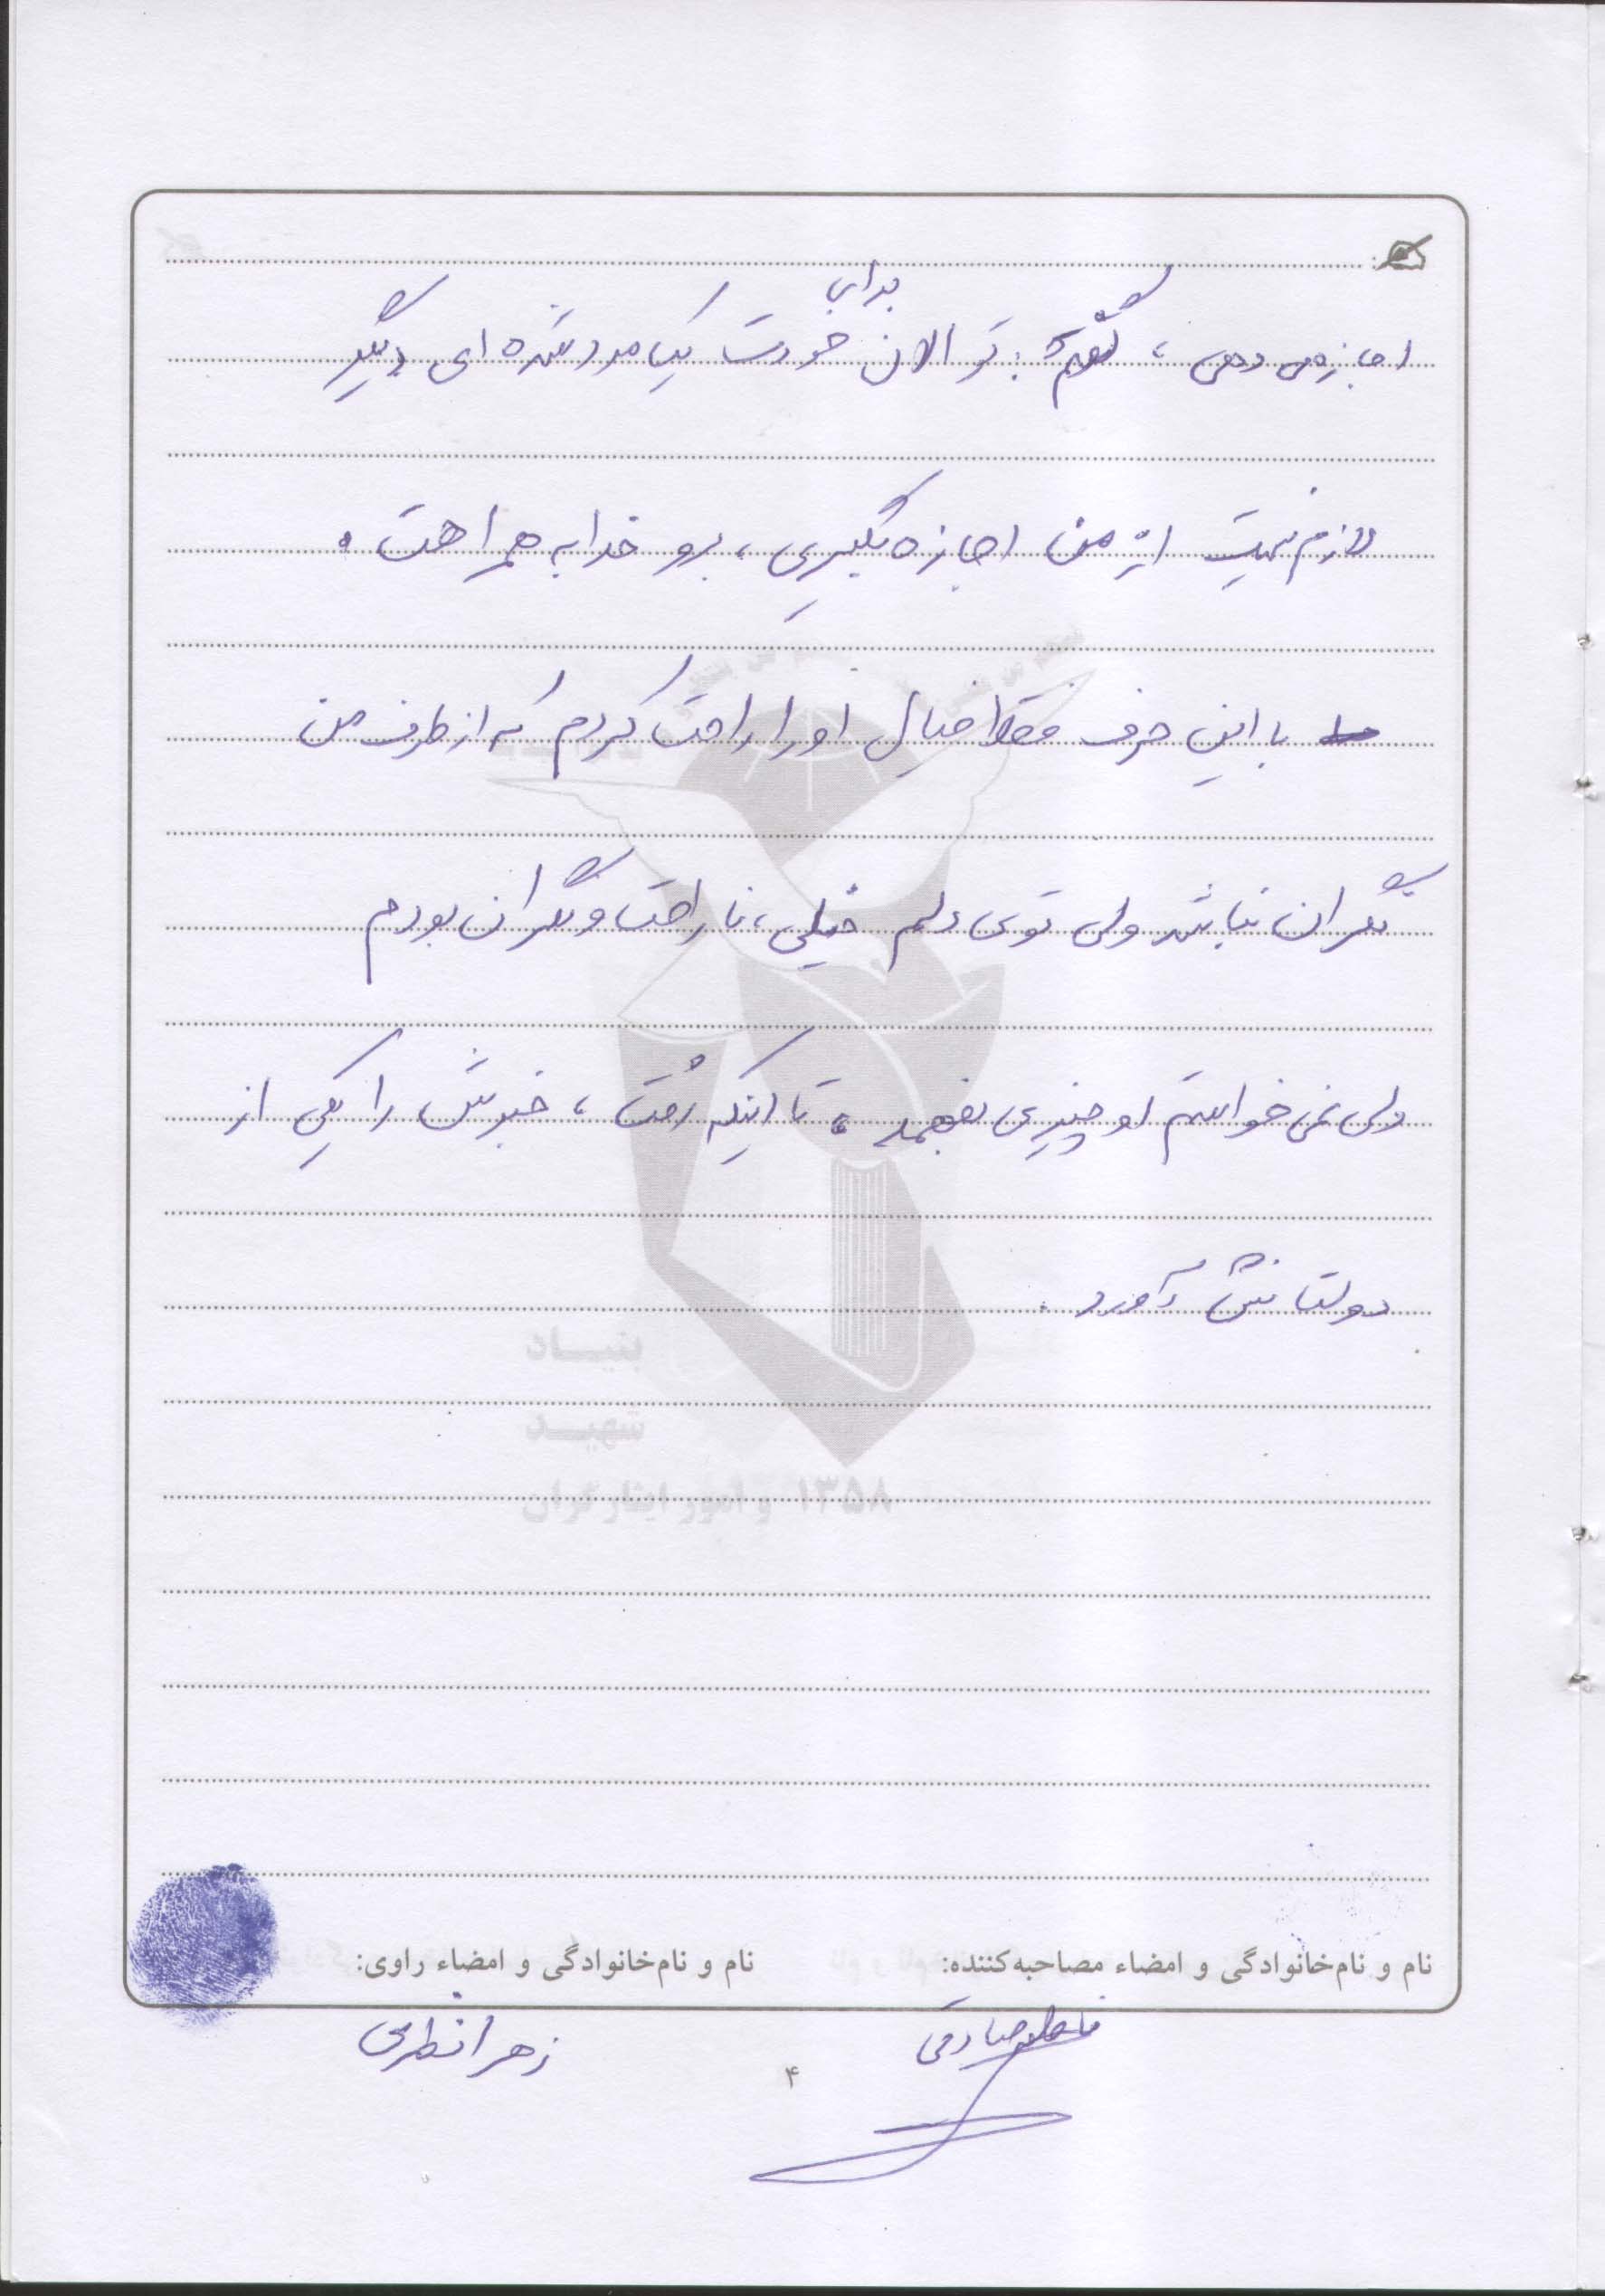 برای
اجازه می دهی، گفتم: تو الان خودت یک مرد شده ای دیگر
لازم نیست از من اجازه بگیری، برو خدا به همراهت.
با این حرف فقط خیال او را راحت کردم که از طرف من
نگران نباشد ولی توی دلم خیلی، ناراحت و نگران بودم
ولی نمی خواستم او چیزی بفهمد، تا اینکه رفت، خبرش را یکی از
دوستانش آورد.
بنیاد
شهید
و امور ایثارگران ۱۳۵۸
نام و نام‌خانوادگی و امضاء مصاحبه‌کننده: نام و نام‌خانوادگی و امضاء راوی:
صادقی زهرا نظری
۴